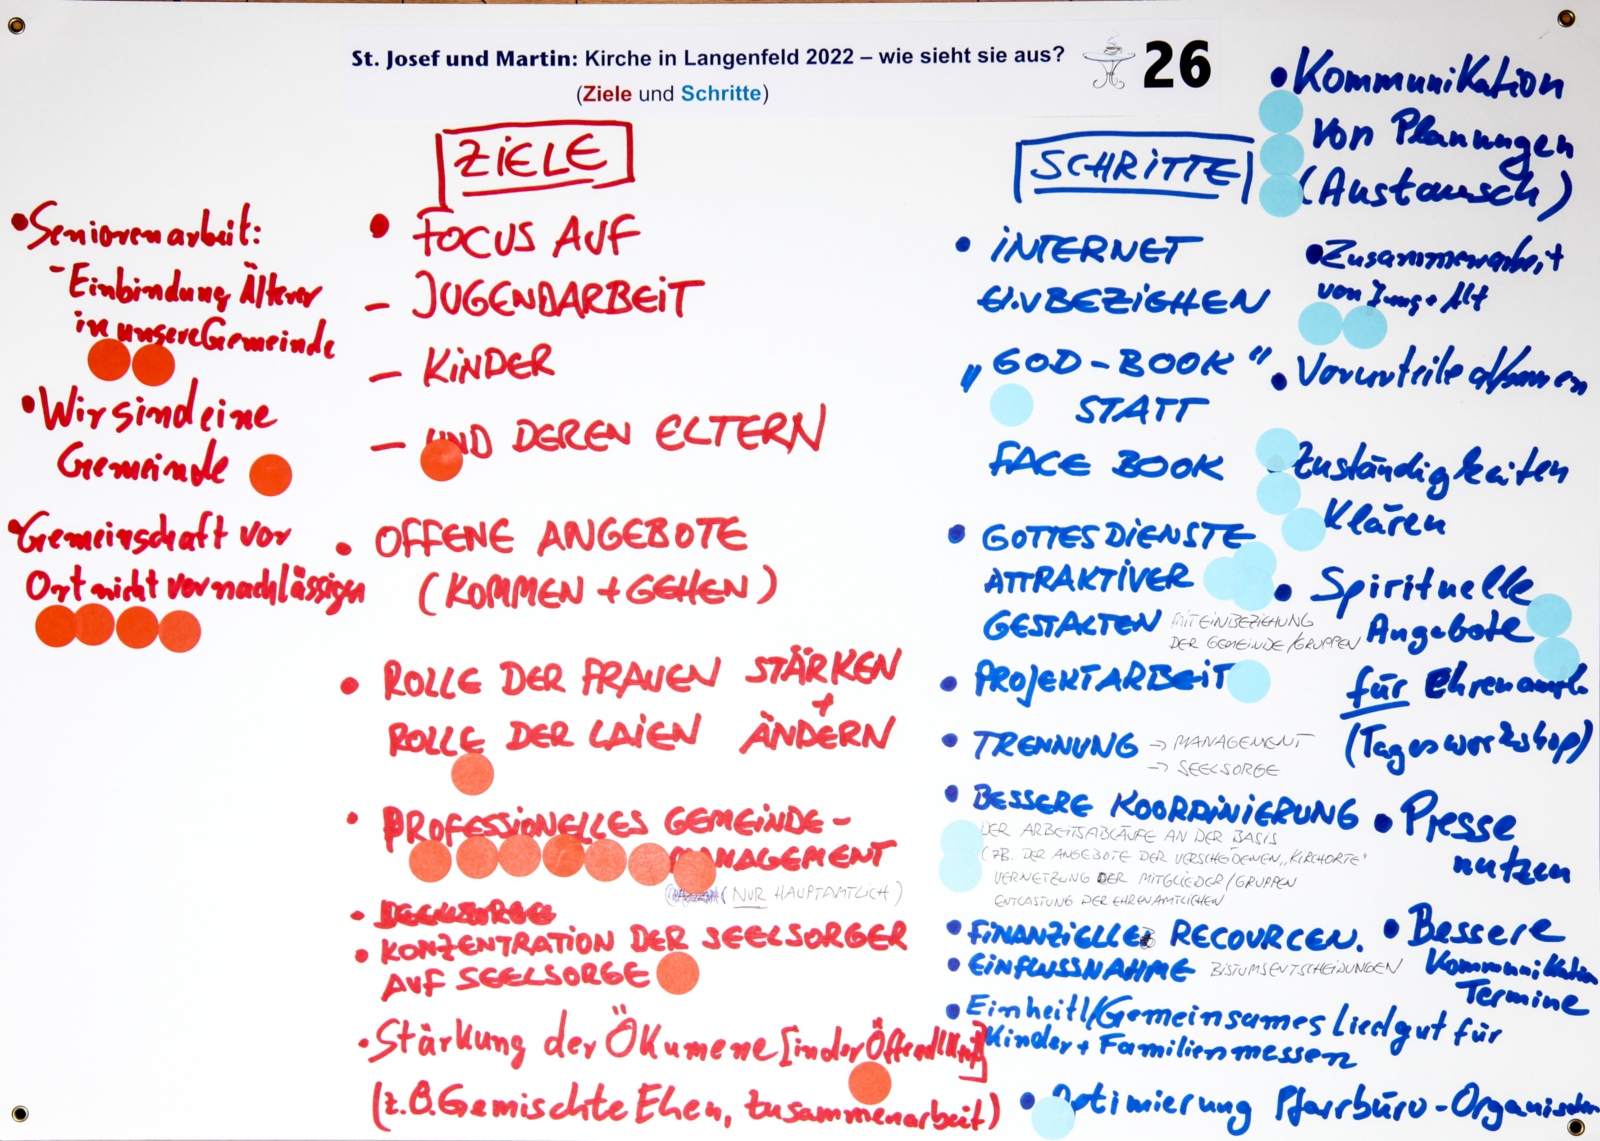 St. Josef und Martin: Kirche in Langenfeld 2022 – wie sieht sie aus?
(Ziele und Schritte)
26
ZIELE
• Seniorenarbeit:
- Einbindung Älterer
in unsere Gemeinde
• Wir sind eine
Gemeinde
• Gemeinschaft vor
Ort nicht vernachlässigen
• FOCUS AUF
– JUGENDARBEIT
– KINDER
– UND DEREN ELTERN
• OFFENE ANGEBOTE
(KOMMEN + GEHEN)
• ROLLE DER FRAUEN STÄRKEN
+
ROLLE DER LAIEN ÄNDERN
• PROFESSIONELLES GEMEINDE-
MANAGEMENT
(NUR HAUPTAMTLICH)
• KONZENTRATION DER SEELSORGER
AUF SEELSORGE
• Stärkung der Ökumene [in der Öffentlkt]
(z.B. Gemischte Ehen, Zusammenarbeit)
SCHRITTE
• INTERNET
EINBEZIEHEN
„GOD-BOOK"
STATT
FACE BOOK
• GOTTESDIENSTE
ATTRAKTIVER
GESTALTEN MIT EINBEZIEHUNG
DER GEMEINDE/GRUPPEN
• PROJEKTARBEIT
• TRENNUNG → MANAGEMENT
→ SEELSORGE
• BESSERE KOORDINIERUNG
DER ARBEITSABLÄUFE AN DER BASIS
(ZB. DER ANGEBOTE DER VERSCHIEDENEN „KIRCHORTE"
VERNETZUNG DER MITGLIEDER/GRUPPEN
ENTLASTUNG DER EHRENAMTLICHEN
• FINANZIELLE RECOURCEN.
• EINFLUSSNAHME BISTUMSENTSCHEIDUNGEN
• Einheitl/Gemeinsames Liedgut für
Kinder + Familienmessen
• Optimierung Pfarrbüro-Organisation
• Kommunikation
von Planungen
(Austausch)
• Zusammenarbeit
von Jung + Alt
• Vorurteile abbauen
• Zuständigkeiten
Klären
• Spirituelle
Angebote
für Ehrenamtl.
(Tagesworkshop)
• Presse
nutzen
• Bessere
Kommunikation
Termine